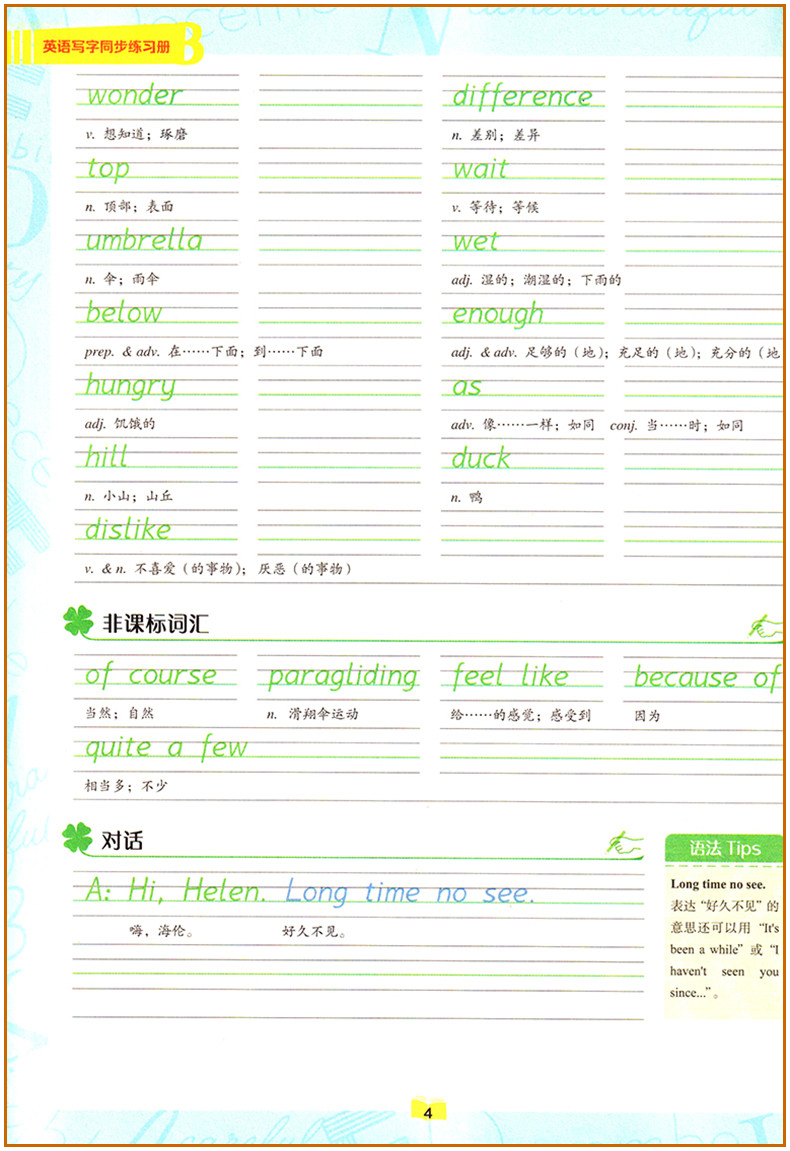 英语写字同步练习册
wonder difference
v. 想知道；琢磨 n. 差别；差异
top wait
n. 顶部；表面 v. 等待；等候
umbrella wet
n. 伞；雨伞 adj. 湿的；潮湿的；下雨的
below enough
prep. & adv. 在……下面；到……下面 adj. & adv. 足够的（地）；充足的（地）；充分的（地
hungry as
adj. 饥饿的 adv. 像……一样；如同 conj. 当……时；如同
hill duck
n. 小山；山丘 n. 鸭
dislike
v. & n. 不喜爱（的事物）；厌恶（的事物）
非课标词汇
of course paragliding feel like because of
当然；自然 n. 滑翔伞运动 给……的感觉；感受到 因为
quite a few
相当多；不少
对话
A: Hi, Helen. Long time no see.
嗨，海伦。 好久不见。
语法 Tips
Long time no see.
表达“好久不见”的
意思还可以用 “It's
been a while” 或 “I
haven't seen you
since...”。
4